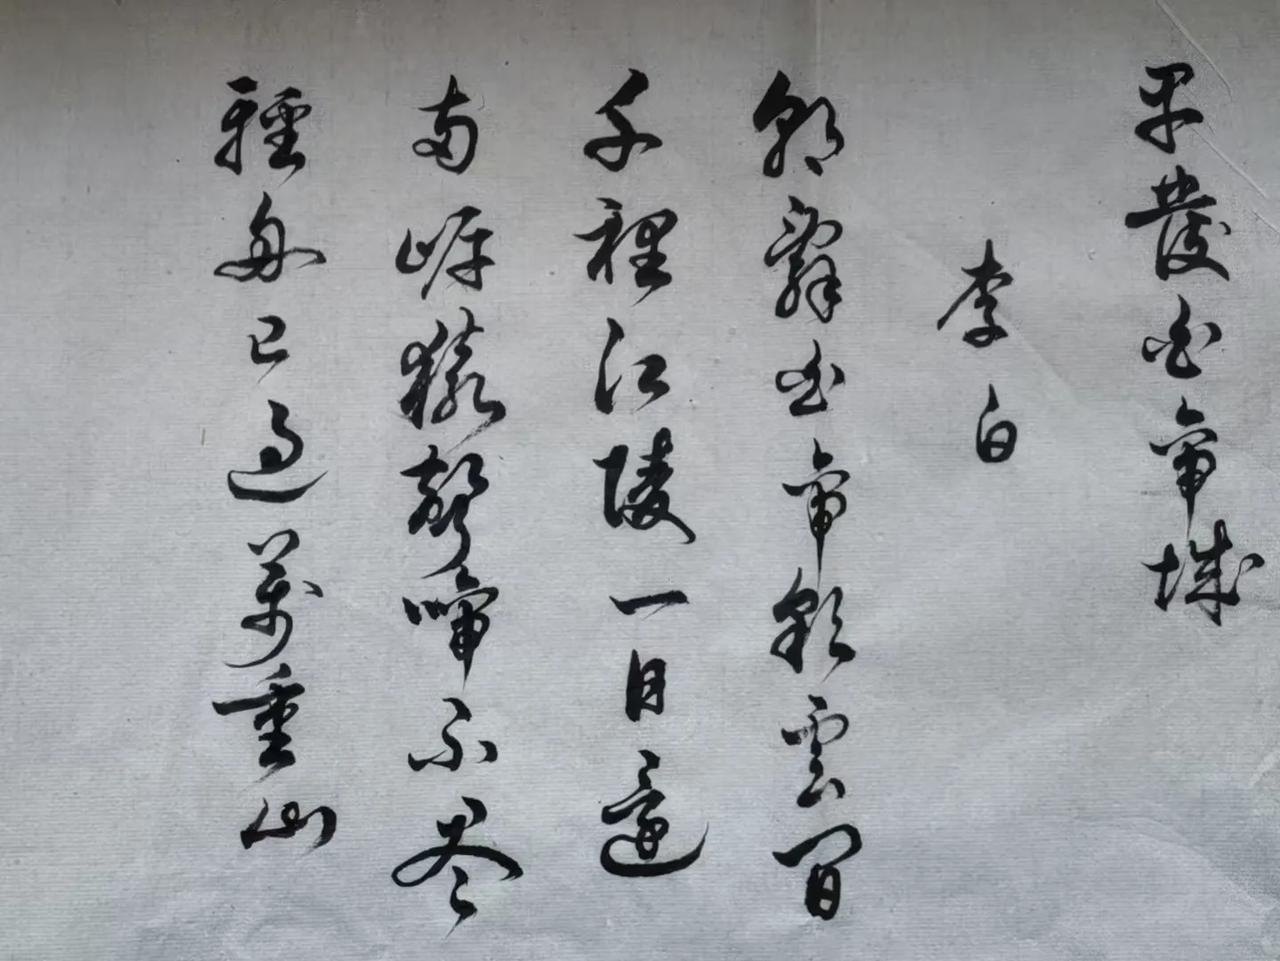 早發白帝城
李白
朝辭白帝彩雲間
千裡江陵一日還
兩岸猿聲啼不尽
輕舟已過萬重山